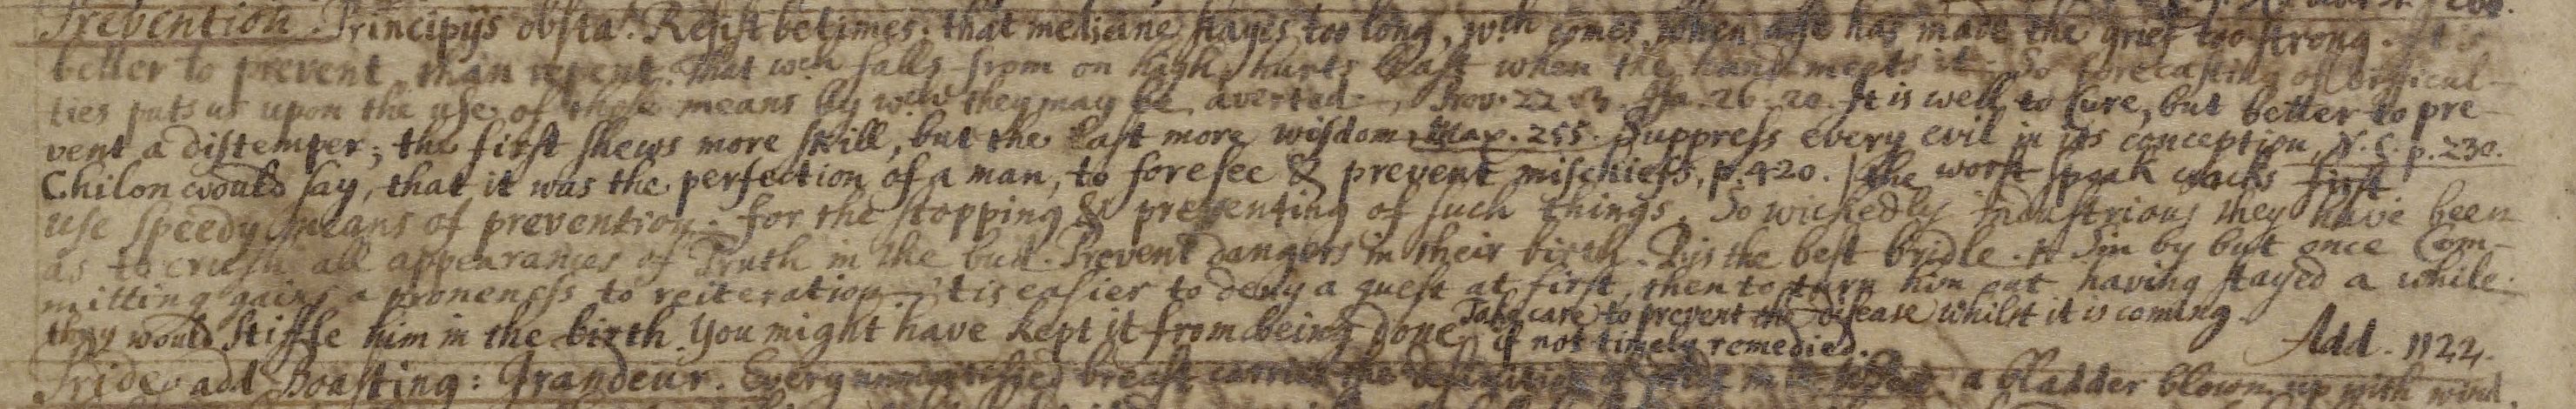 Prevention. Principijs obsta. Resist betimes: that medicine stayes too long, wch comes when age has made the grief too strong. It is
better to prevent than repent. That wch falls from on high hurts least when the hand meets it. So forecasting of difficul-
ties puts us upon the use of those means by wch they may be averted, Prov. 22.3. Isa. 26.20. It is well to Cure, but better to pre-
vent a distemper; the first shews more skill, but the last more wisdom. Max. 255. Suppress every evil in its conception, N.S. p. 230.
Chilon would say, that it was the perfection of a man, to foresee & prevent mischiefs, p. 420. | the worst speak first
use speedy means of prevention. for the stopping & preventing of such things. So wickedly industrious they have been
as to crush all appearances of Truth in the bud. Prevent dangers in their birth. Tijs the best bridle. Sin by but once Com-
mitting gains a proneness to reiteration. 'tis easier to deny a guest at first, then to turn him out having stayed a while.
they would stiffle him in the birth. You might have kept it from being done. Take care to prevent the disease whilst it is coming.
if not timely remedied. Add. 1122.
Pride. add Boasting: Grandeur. Every breast carries the a bladder blown up with wind.